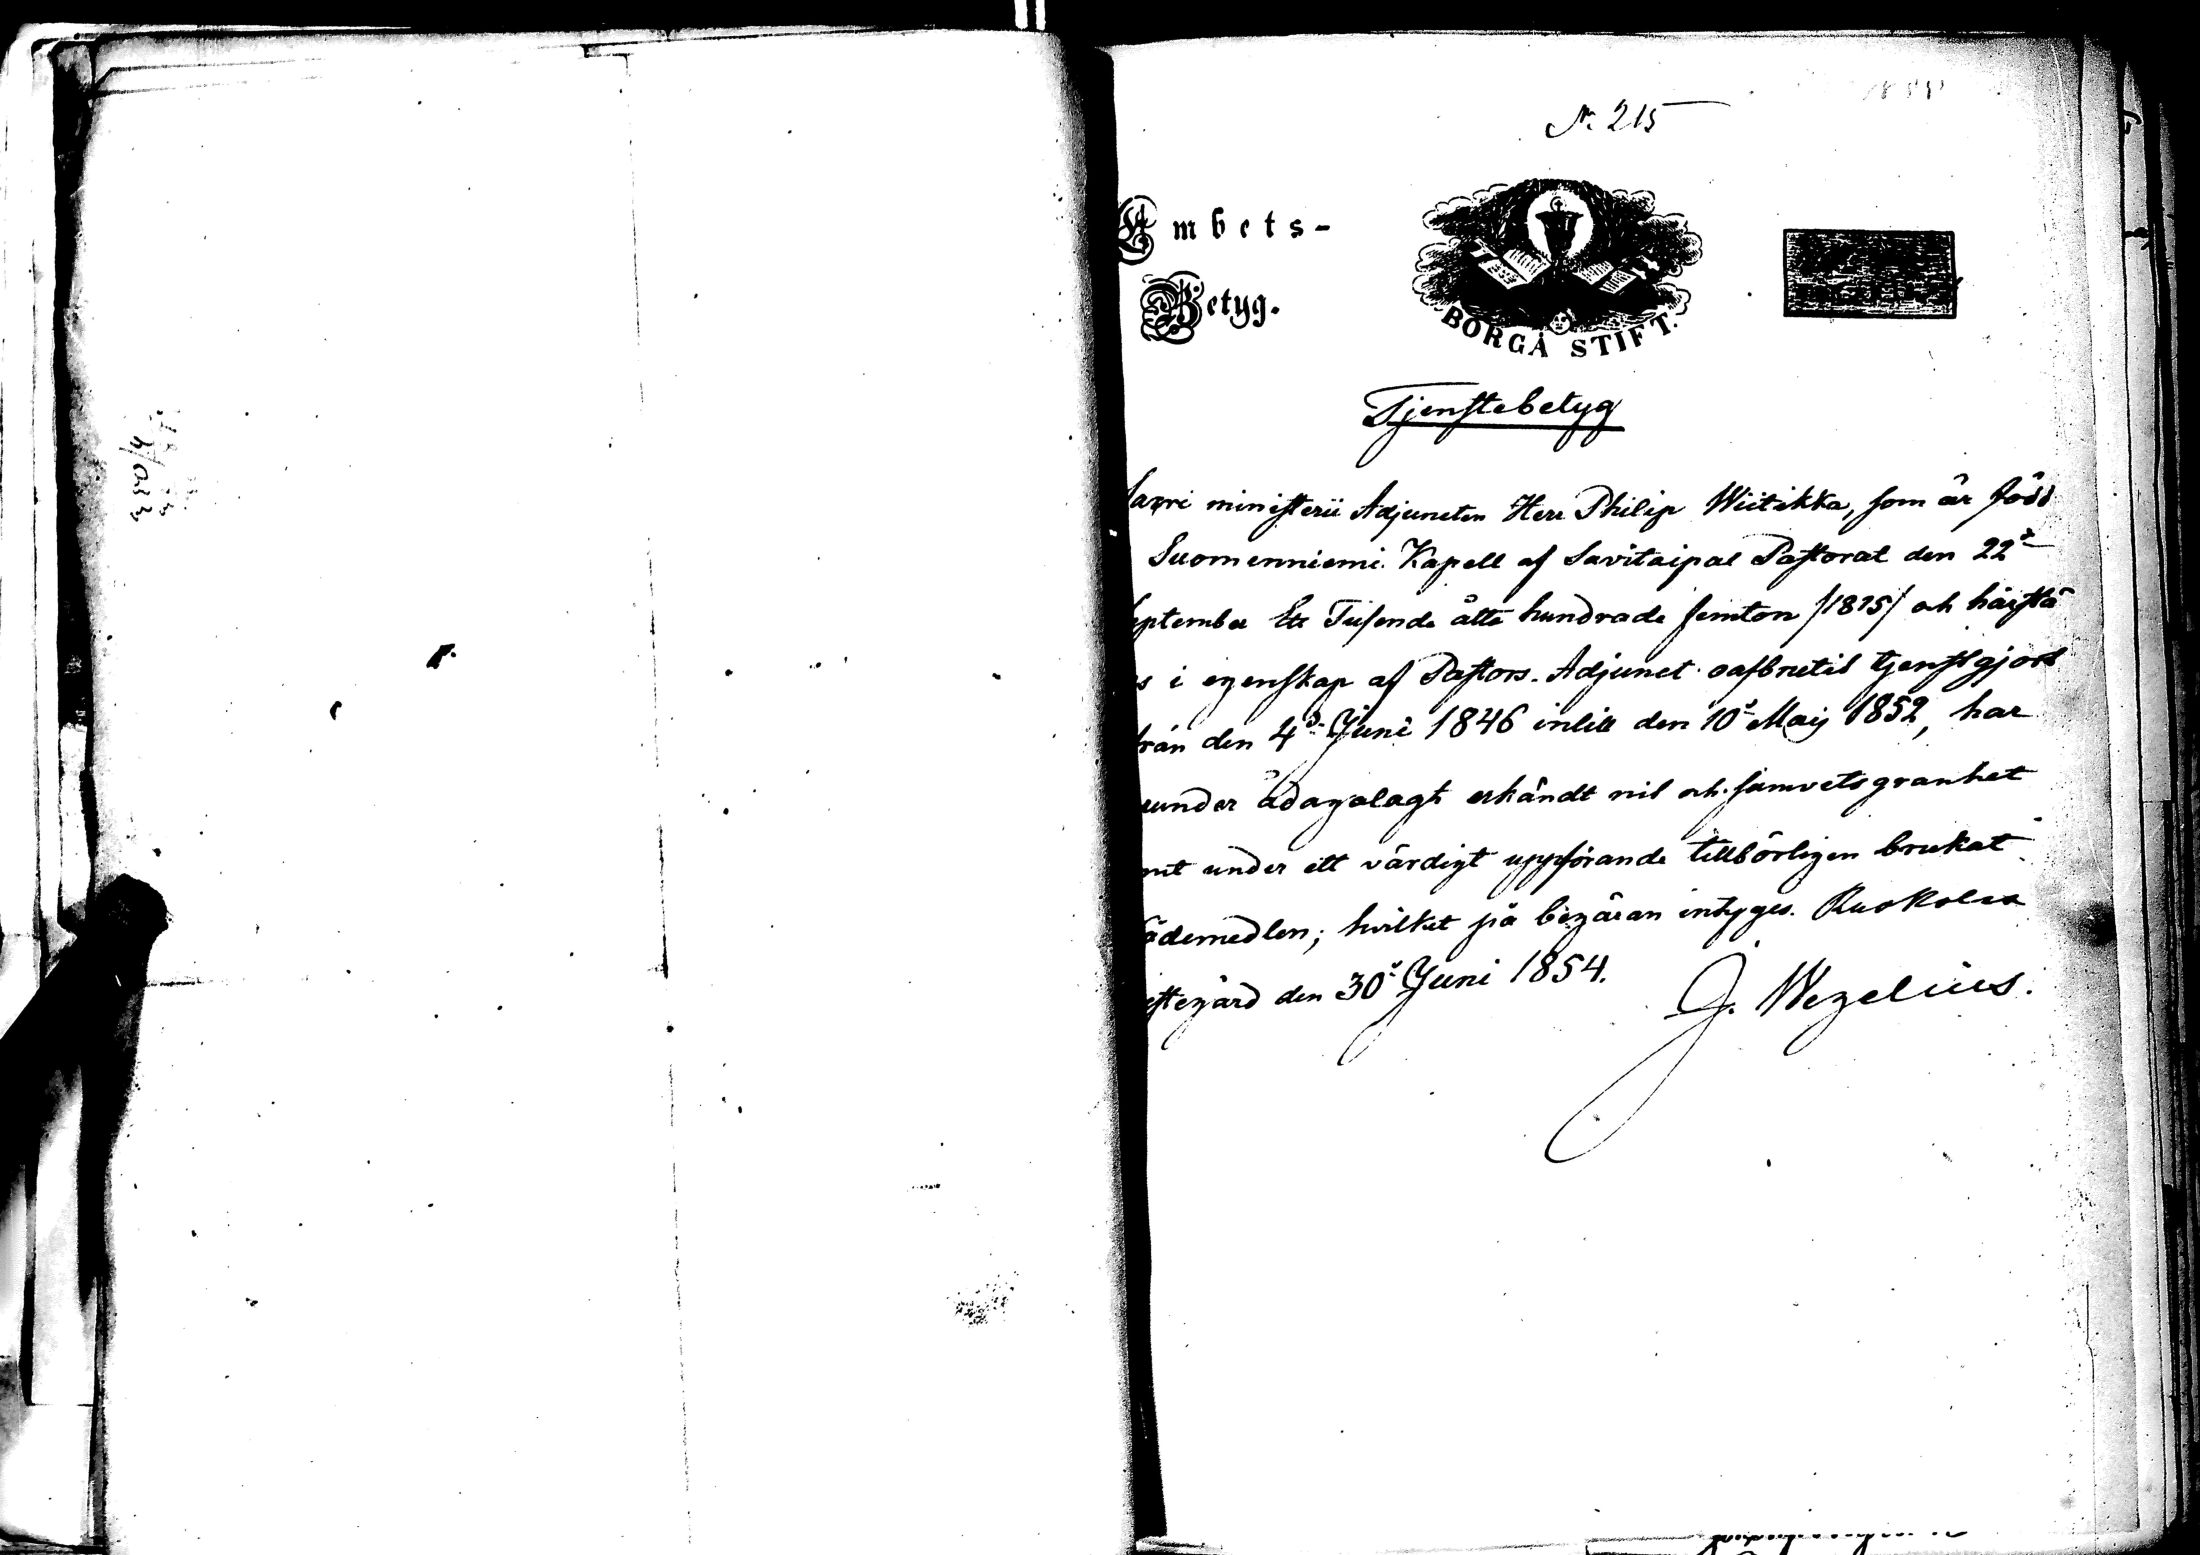 N. 215
Embets-
Betyg.
BORGÅ STIFT.
Tjenstebetyg
Sacri ministerii Adjuncten Herr Philip Wiitikka, som är född
Suomenniemi Kapell af Savitaipal Pastorat den 22
eptember Ett Tusende åtta hundrade femton /1815/ och härstä
s i egenskap af Pastors-Adjunct oafbrutit tjenstgjort
från den 4 Juni 1846 intill den 10 Maij 1852, har
under ådagalagt erkändt nit och samvetsgranhet
mt under ett värdigt uppförande tillbörligen brukat
ådemedlen; hvilket på begäran intyges. Ruokolax
estegård den 30 Juni 1854.
J. Wegelius.